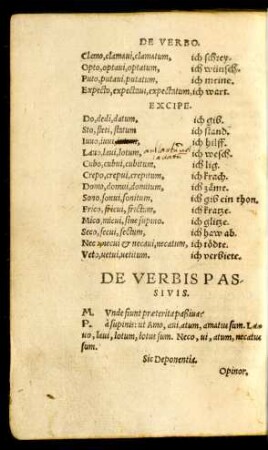 DE VERBO.
Clamo, clamaui, clamatum, ich schrey.
Opto, optaui, optatum, ich wünsch.
Puto, putaui, putatum, ich meine.
Expecto, expectaui, expectatum, ich wart.
EXCIPE.
Do, dedi, datum, ich gib.
Sto, steti, statum ich stand.
Iuuo, iuui, ich hilff.
Lauo, laui, lotum, ich wesch.
Cubo, cubui, cubitum, ich lig.
Crepo, crepui, crepitum, ich krach.
Domo, domui, domitum, ich zäme.
Sono, sonui, sonitum, ich gib ein thon.
Frico, fricui, frictum, ich kratze.
Mico, micui, sine supino. ich glitze.
Seco, secui, sectum, ich haw ab.
Neco necui & necaui, necatum, ich tödte.
Veto, uetui, uetitum. ich verbiete.
DE VERBIS PAS-
SIVIS.
M. Vnde fiunt præterita paßiua?
P. à supinis: ut Amo, aui, atum, amatus sum. La-
uo, laui, lotum, lotus sum. Neco, ui, atum, necatus
sum.
Sic Deponentia.
Opinor,